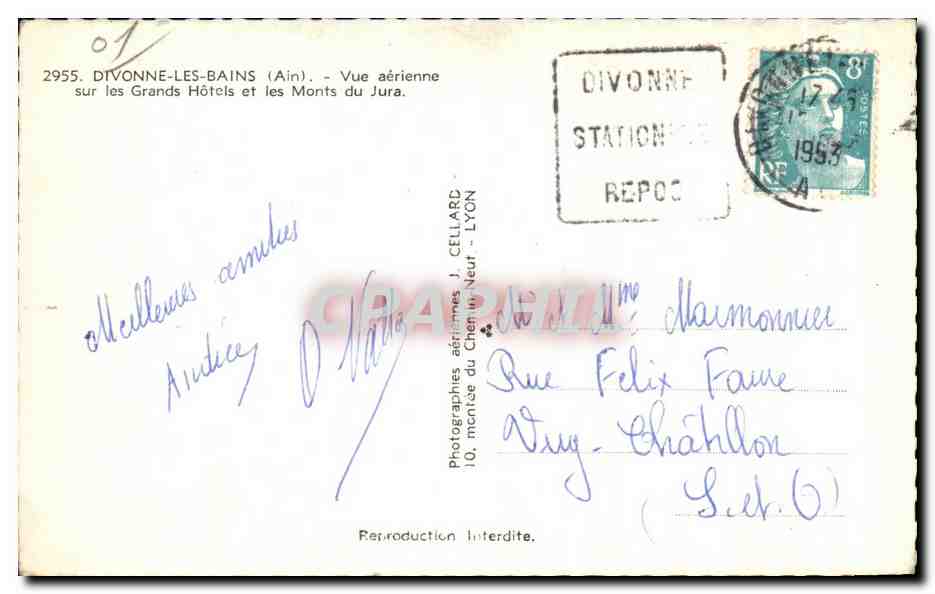 01
2955. DIVONNE-LES-BAINS (Ain). - Vue aérienne
sur les Grands Hôtels et les Monts du Jura.
DIVONNE
STATION
REPOS
8F
POSTES
RF
17
1953
A
Meilleures amitiés
Photographies aériennes J. CELLARD
10, montée du Chemin-Neuf - LYON
M & Mme Maimonnier
Rue Felix Faure
Viry-Châtillon
(S. et. O)
Reproduction Interdite.